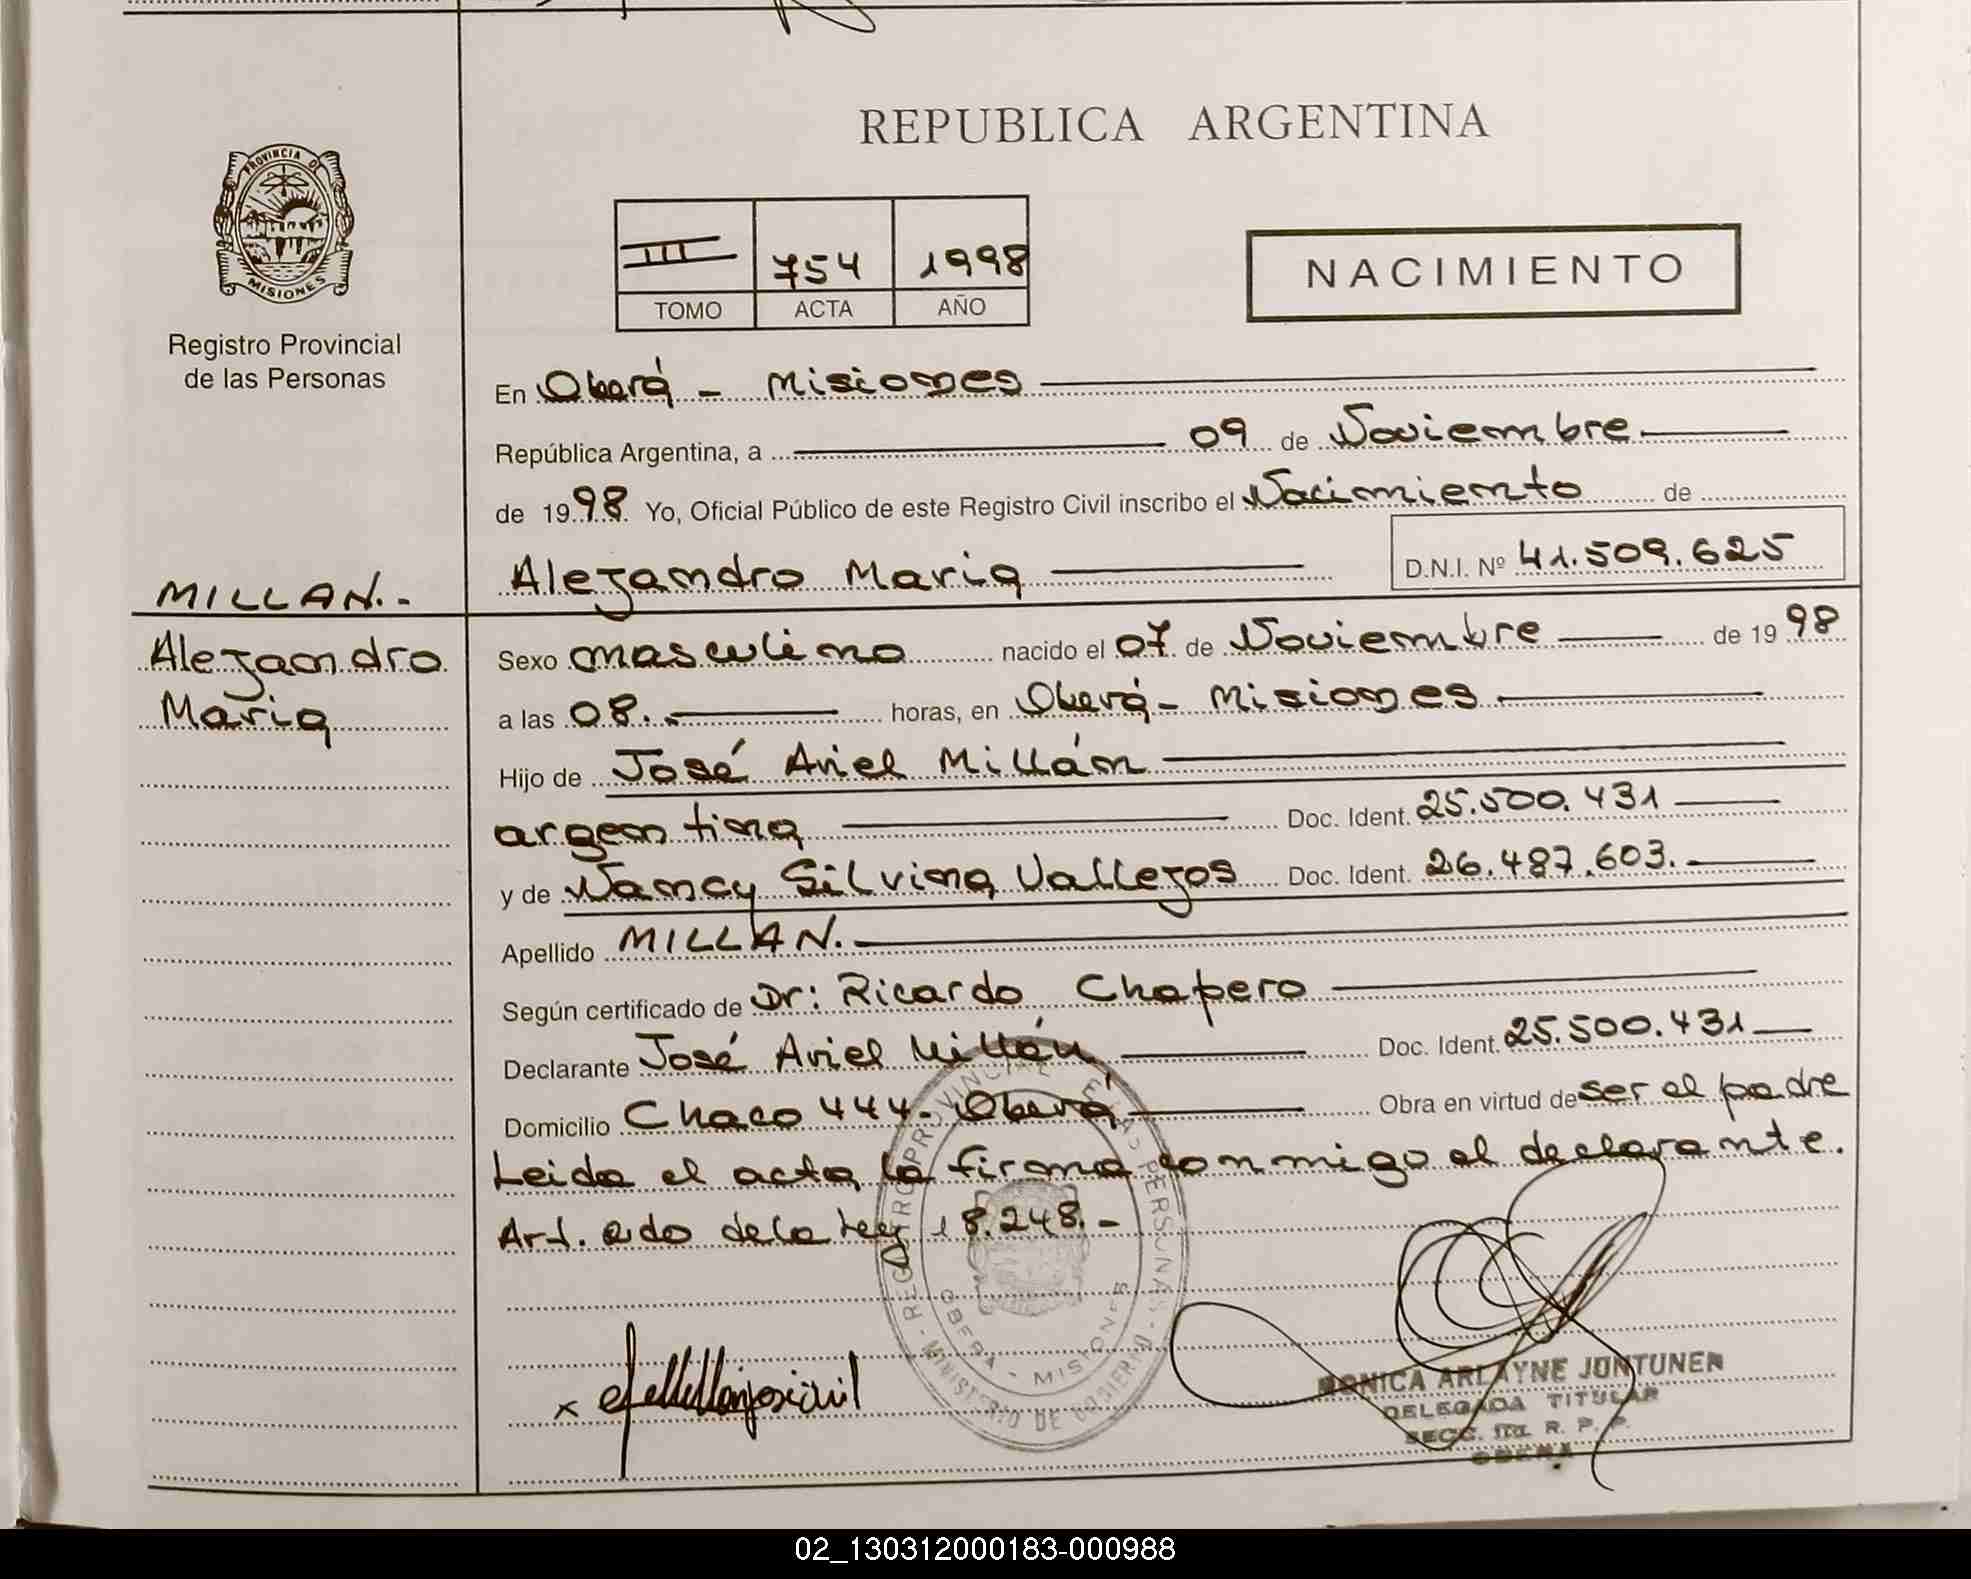 REPUBLICA ARGENTINA
PROVINCIA DE
MISIONES
Registro Provincial
de las Personas
III 754 1998
TOMO ACTA AÑO
NACIMIENTO
En Oberá - Misiones
República Argentina, a 09 de Noviembre
de 1998 Yo, Oficial Público de este Registro Civil inscribo el Nacimiento de
Alejandro Maria D.N.I. Nº 41.509.625
MILLAN.-
Alejandro
Maria
Sexo masculino nacido el 07 de Noviembre de 1998
a las 08. horas, en Oberá - Misiones
Hijo de José Ariel Millán
argentina Doc. Ident. 25.500.431
y de Nancy Silvina Vallejos Doc. Ident. 26.487.603.
Apellido MILLAN.
Según certificado de Dr: Ricardo Chapero
Declarante José Ariel Millán Doc. Ident. 25.500.431
Domicilio Chaco 444- Oberá Obra en virtud de ser el padre
Leida el acta la firma conmigo el declarante.
Art. 2do de la Ley 18.248.-
REGISTRO PROVINCIAL DE LAS PERSONAS
OBERA - MISIONES
MINISTERIO DE GOBIERNO
x
MONICA ARLAYNE JONTUNEN
DELEGADA TITULAR
SECC. IIIa. R. P. P.
OBERA
02_130312000183-000988